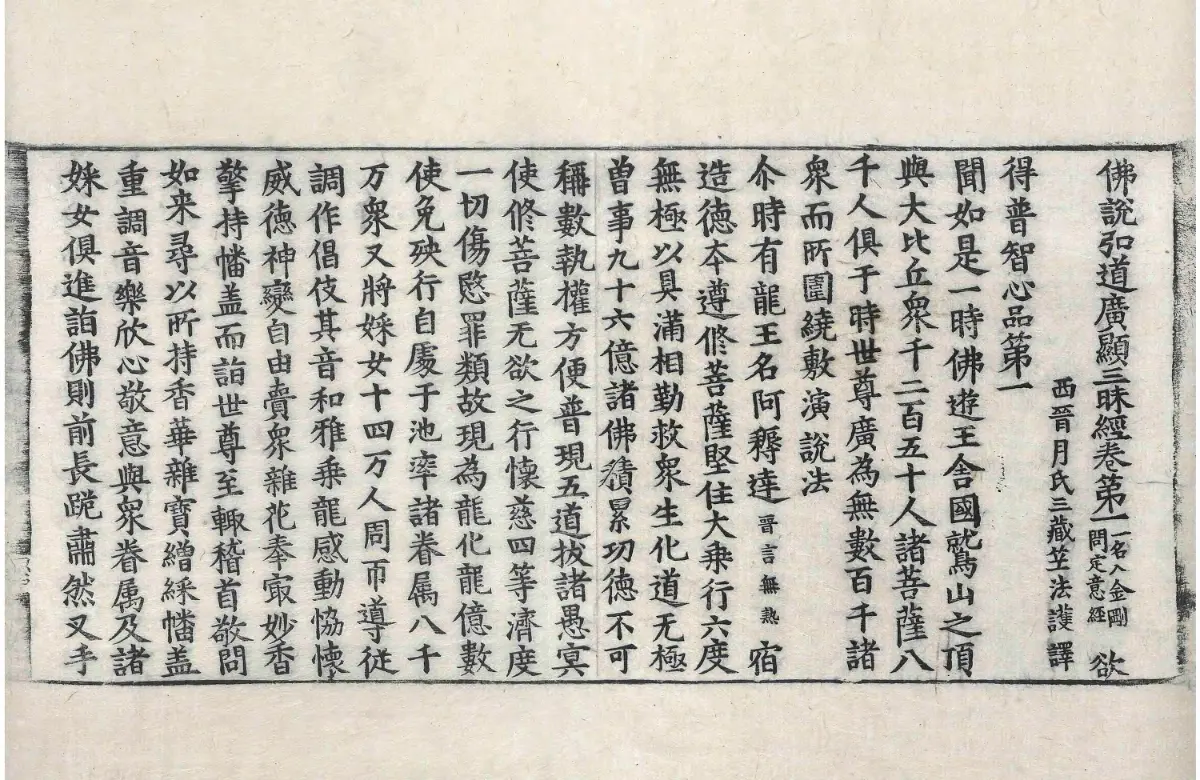 佛說弘道廣顯三昧經卷第一一名入金剛問定意經 欲
西晉月氏三藏竺法護譯
得普智心品第一
聞如是一時佛遊王舍國鷲山之頂
與大比丘衆千二百五十人諸菩薩八
千人俱于時世尊廣為無數百千諸
衆而所圍繞敷演說法
尒時有龍王名阿耨達晉言無熱宿
造德夲遵修菩薩堅住大乗行六度
無極以具滿相勤救衆生化道无極
曽事九十六億諸佛積累功德不可
稱數執權方便普現五道拔諸愚冥
使修菩薩无欲之行懷慈四等濟度
一切傷愍罪類故現為龍化龍億數
使免殃行自處于池率諸眷属八千
万衆又將婇女十四万人周帀導從
調作倡伎其音和雅乗龍感動恊懷
威德神變自由賷衆雜花奉㝡妙香
擎持幡盖而詣世尊至輙稽首敬問
如来尋以所持香華雜寳繒綵幡盖
重調音樂欣心敬意與衆眷属及諸
婇女俱進詣佛則前長跪肅然叉手